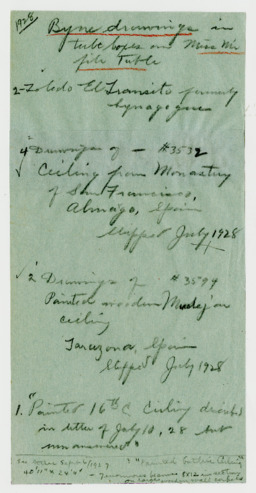 1928
Byne drawings in
tube boxes on Miss
file Table
2 - Toledo El Transito formerly
Synagogue
4 Drawings of - #3532
Ceiling from Monastery
of San Francisco,
Spain
Shipped July 1928
2 Drawings of #3594
Painted wooden Mudejar
ceiling
Tarazona, Spain
Shipped July 1928
1. "Painted 16th C Ceiling described
in letter of July 10, 28 but
unnumbered"
"Painted Gothic Ceiling"